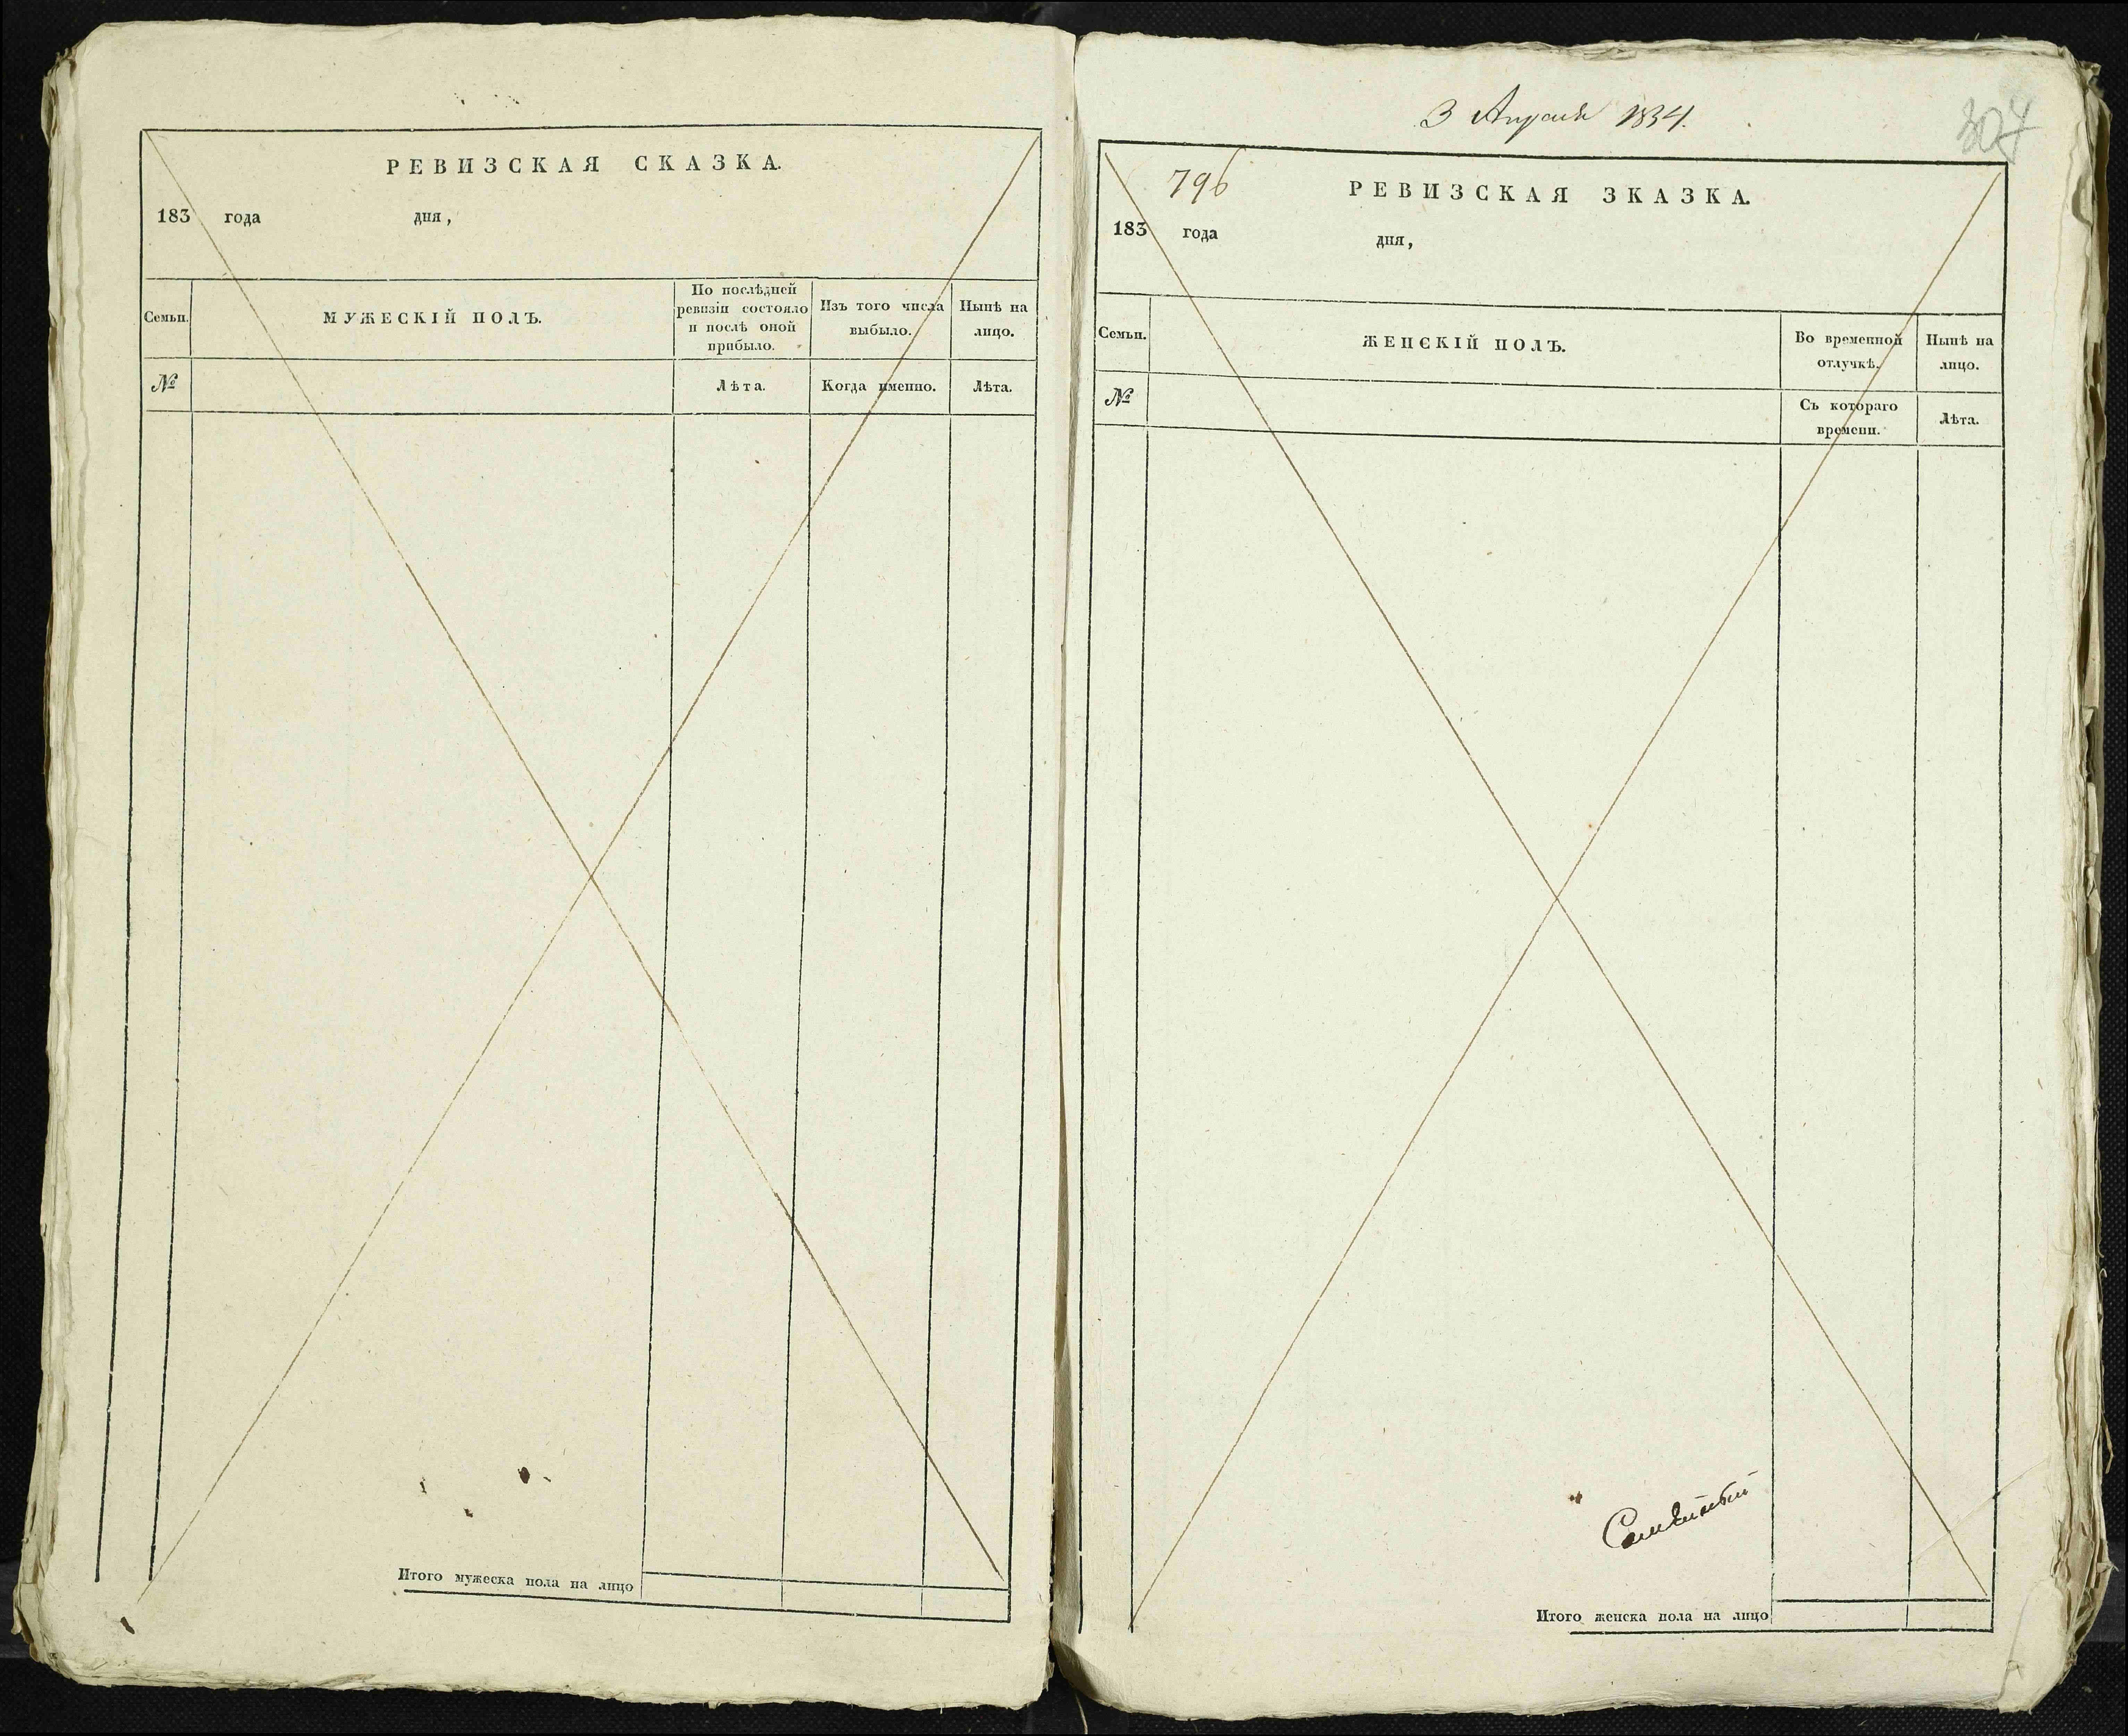 РЕВИЗСКАЯ СКАЗКА.
183 года дня,
Семьи.
МУЖЕСКІЙ ПОЛЪ.
По послѣдней
ревизіи состояло
и послѣ оной
прибыло.
Изъ того числа
выбыло.
Нынѣ на
лицо.
№
Лѣта.
Когда именно.
Лѣта.
Итого мужеска пола на лицо
3 Апреля 1834.
307
796
РЕВИЗСКАЯ ЗКАЗКА.
183 года дня,
Семьи.
ЖЕНСКІЙ ПОЛЪ.
Во временной
отлучкѣ.
Нынѣ на
лицо.
№
Съ котораго
времени.
Лѣта.
Итого женска пола на лицо